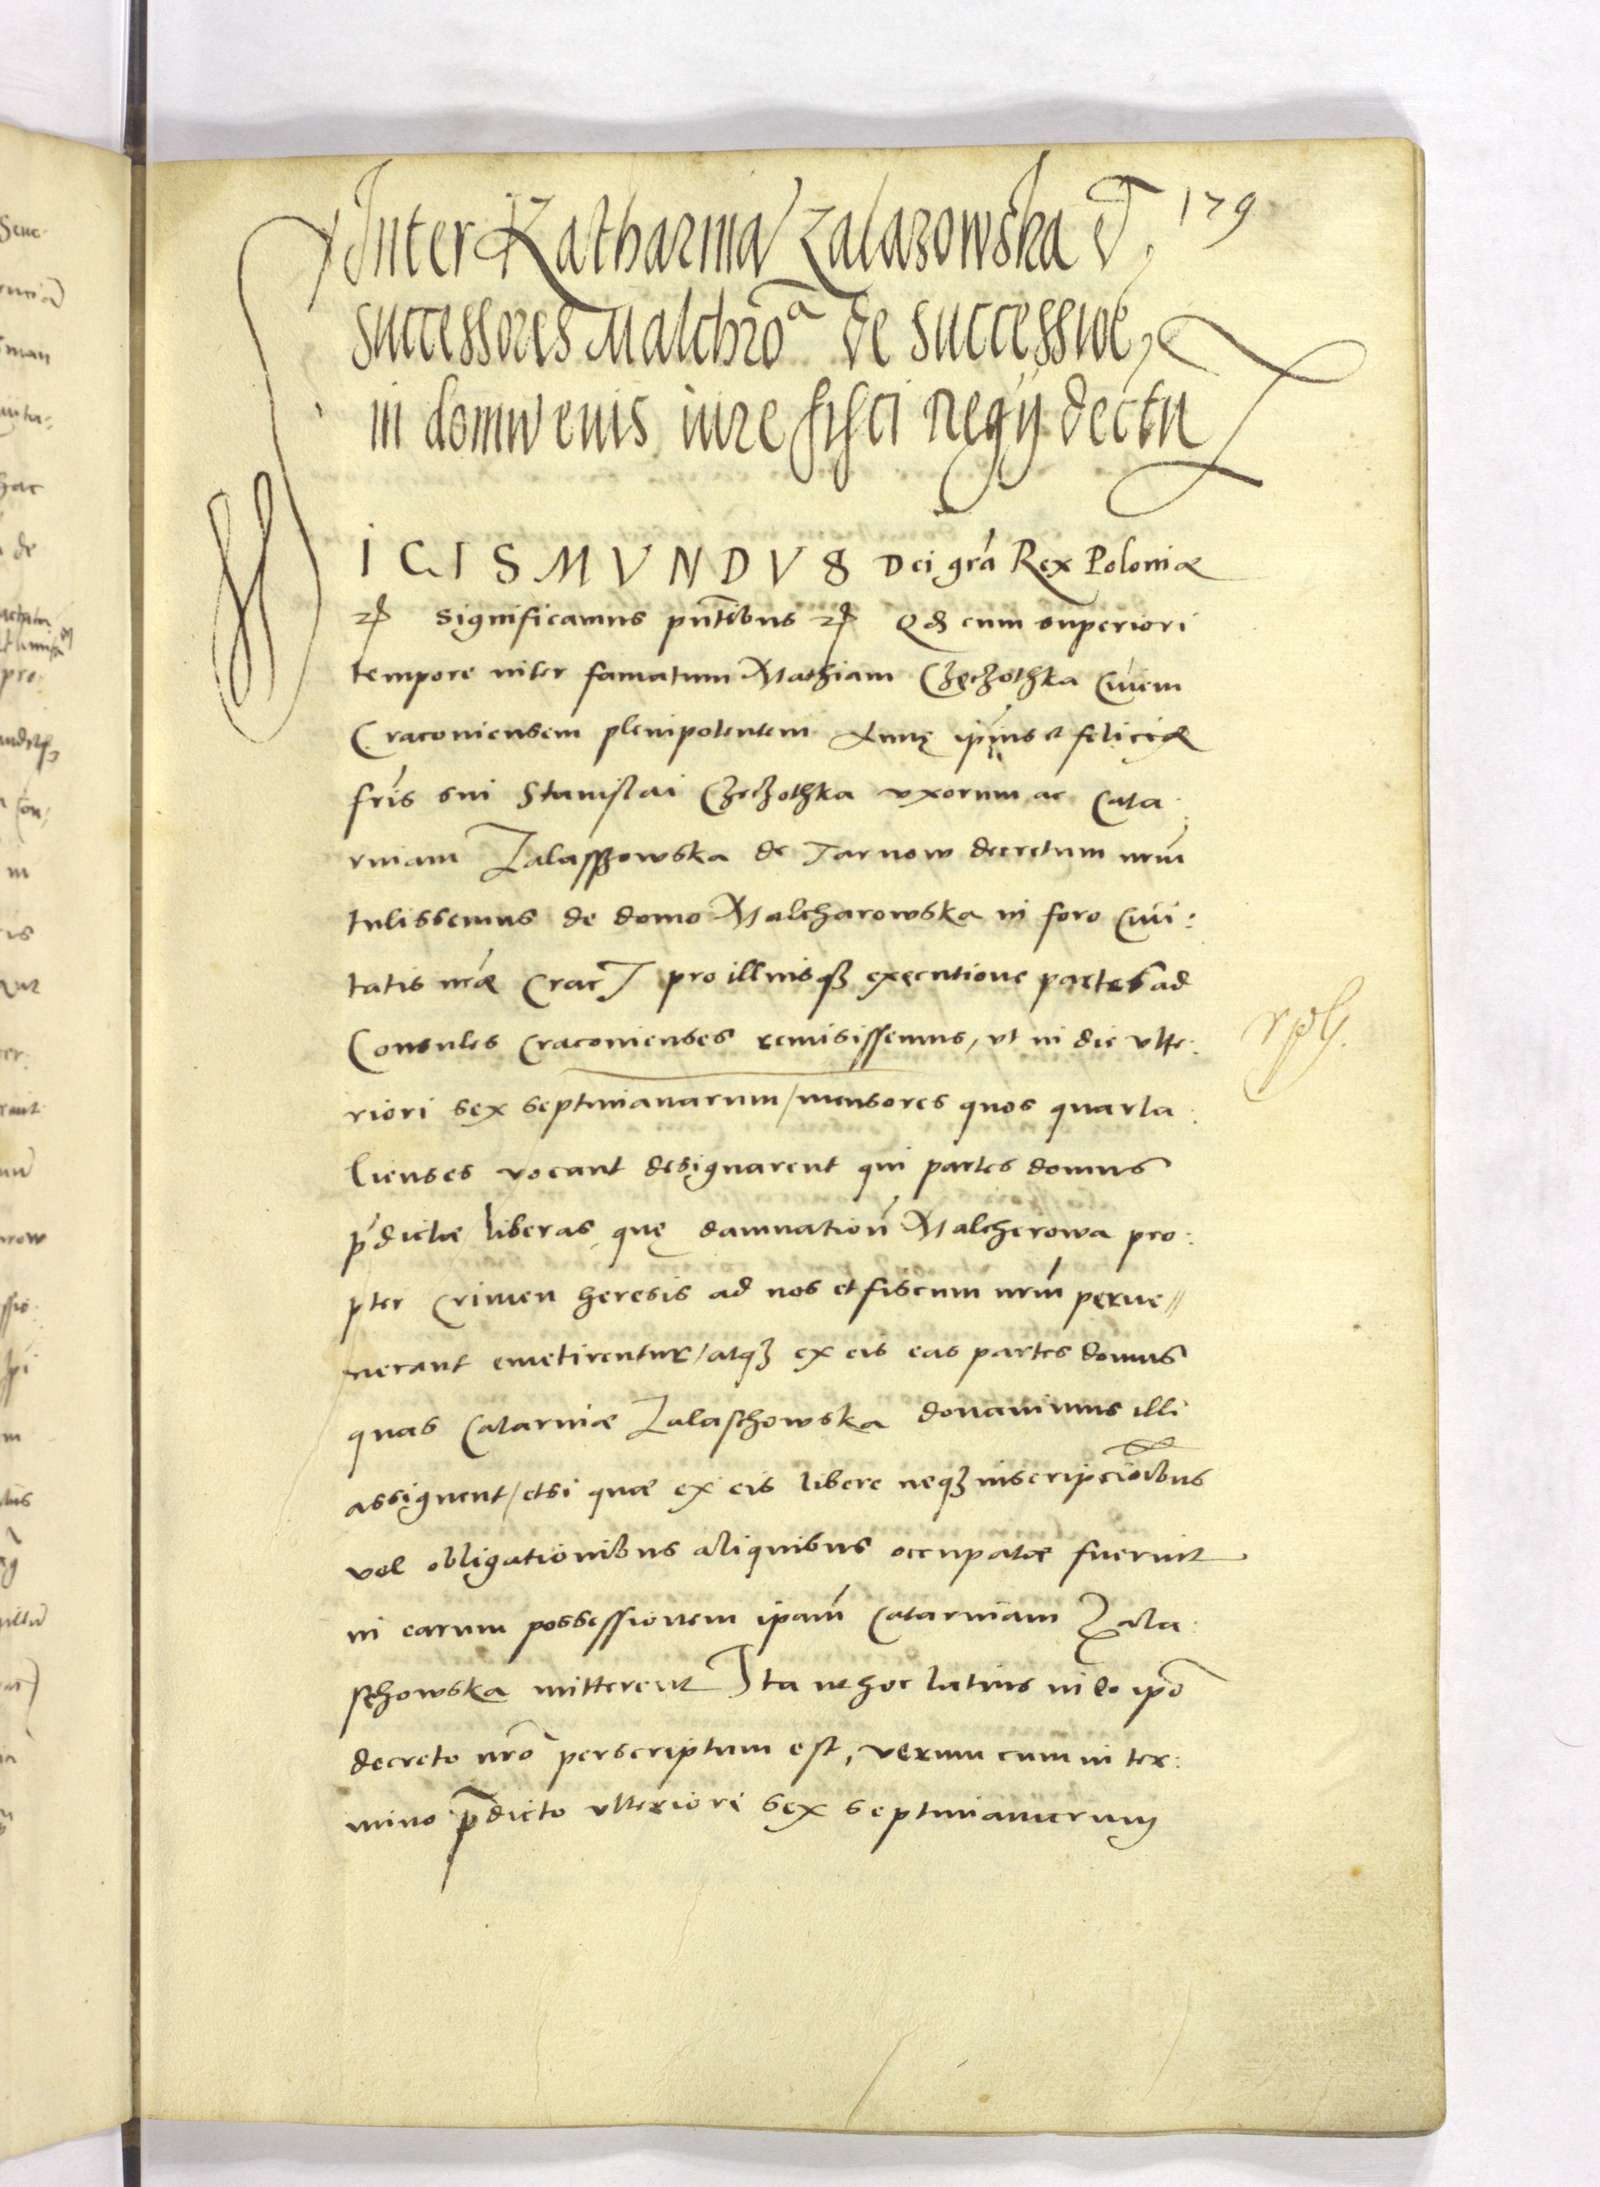 179
Inter Katharinā Zalazowska et
successores Malchroa de successioē
in domū eius iure fisci Regij dectū
SIGISMVNDVS Dei grā Rex Poloniæ
etc significamus pntibus etc Qd cum superiori
tempore inter famatum Mathiam Czeczothka Civem
Cracoviensem plenipotentem Annę ipius et feliciæ
fris sui Stanislai Czeczothka vxorum ac Cata:
rinam Zalasszowska de Tarnow decretum nrm
tulissemus de domo Malcharowska in foro Civi:
tatis nræ Crac pro illiusqz exęcutione partes ad
Consules Cracovienses remisissemus, vt in die vlte:
riori sex septimanarum/mensores quos quarta:
lienses vocant designarent qui partes domus
pdictæ liberas, quę damnation Malcherowa pro:
pter Crimen heresis ad nos et fiscum nrm perve//
nerant emetirentur/atqz ex eis eas partes domus
quas Catarinæ Zalaschowska donavimus illi
assignent/etsi quæ ex eis libere neqz inscripcioibus
vel obligationibus aliquibus occupatæ fuerint
in earum possessionem ipam Catarinam Zala:
schowska mitterent Ita ut hoc latius in eo ipo
decreto nro perscriptum est, verum cum in ter:
mino pdicto vlteriori sex septimanarum